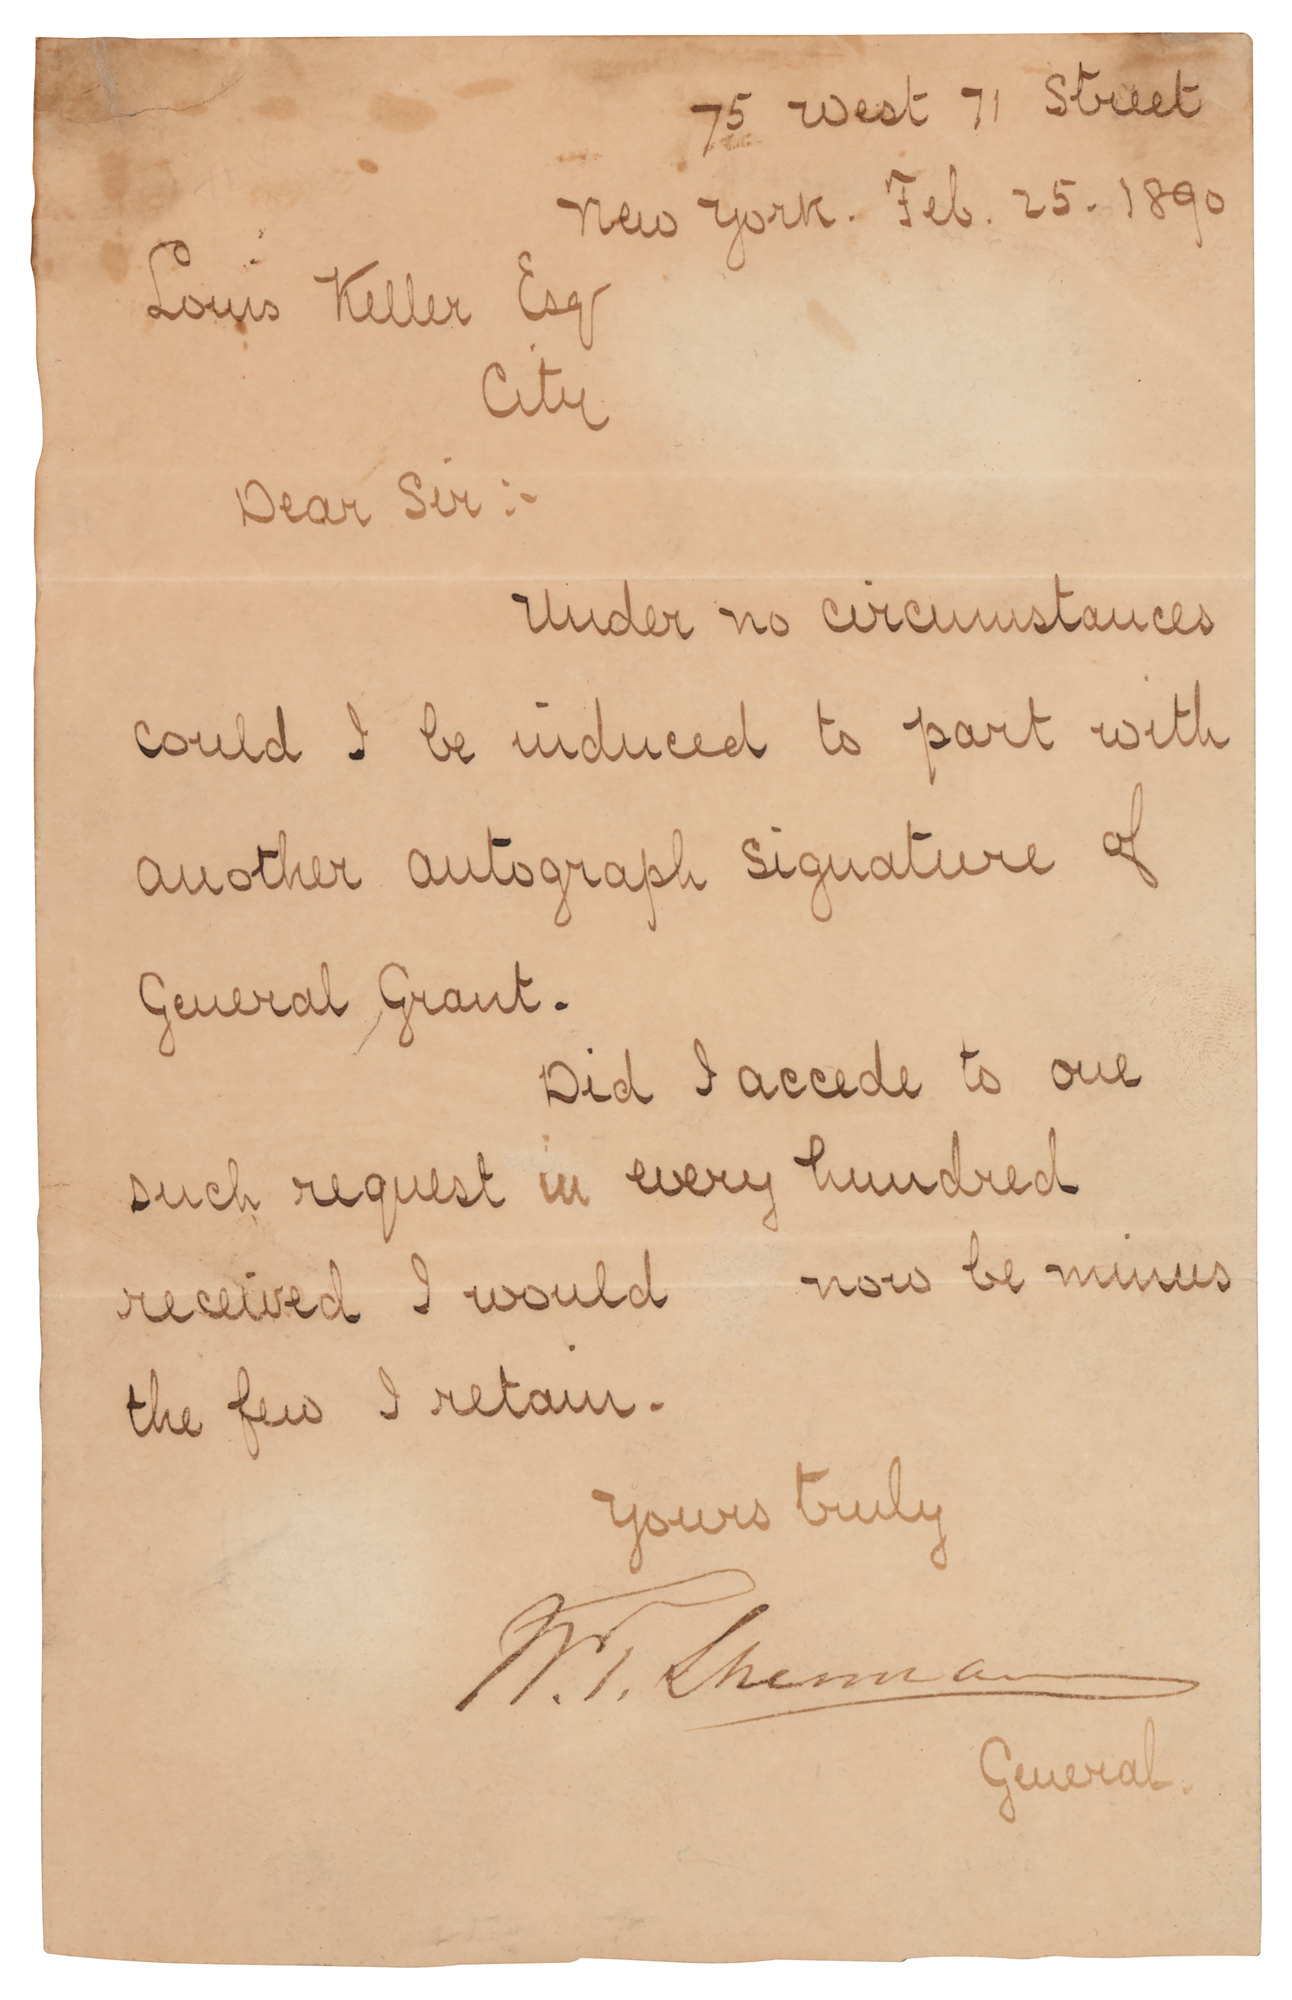 75 West 71 Street
New York. Feb. 25. 1890
Louis Keller Esq
City
Dear Sir :-
Under no circumstances
could I be induced to part with
another autograph signature of
General Grant.
Did I accede to one
such request in every hundred
received I would now be minus
the few I retain.
Yours truly
W. T. Sherman
General.